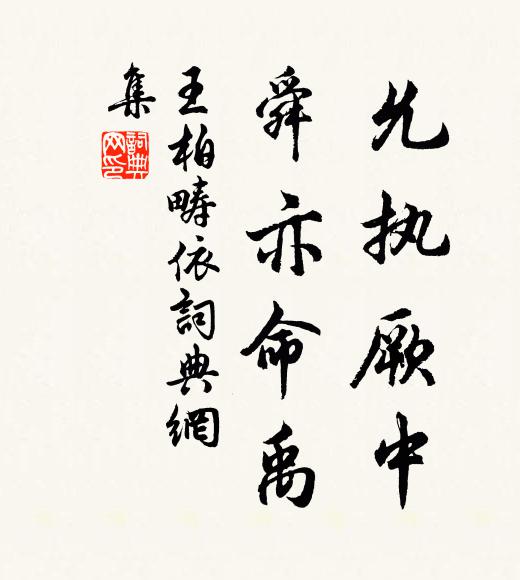 允执厥中
舜亦命禹
王柏畴依詞典網
集
詞典网印